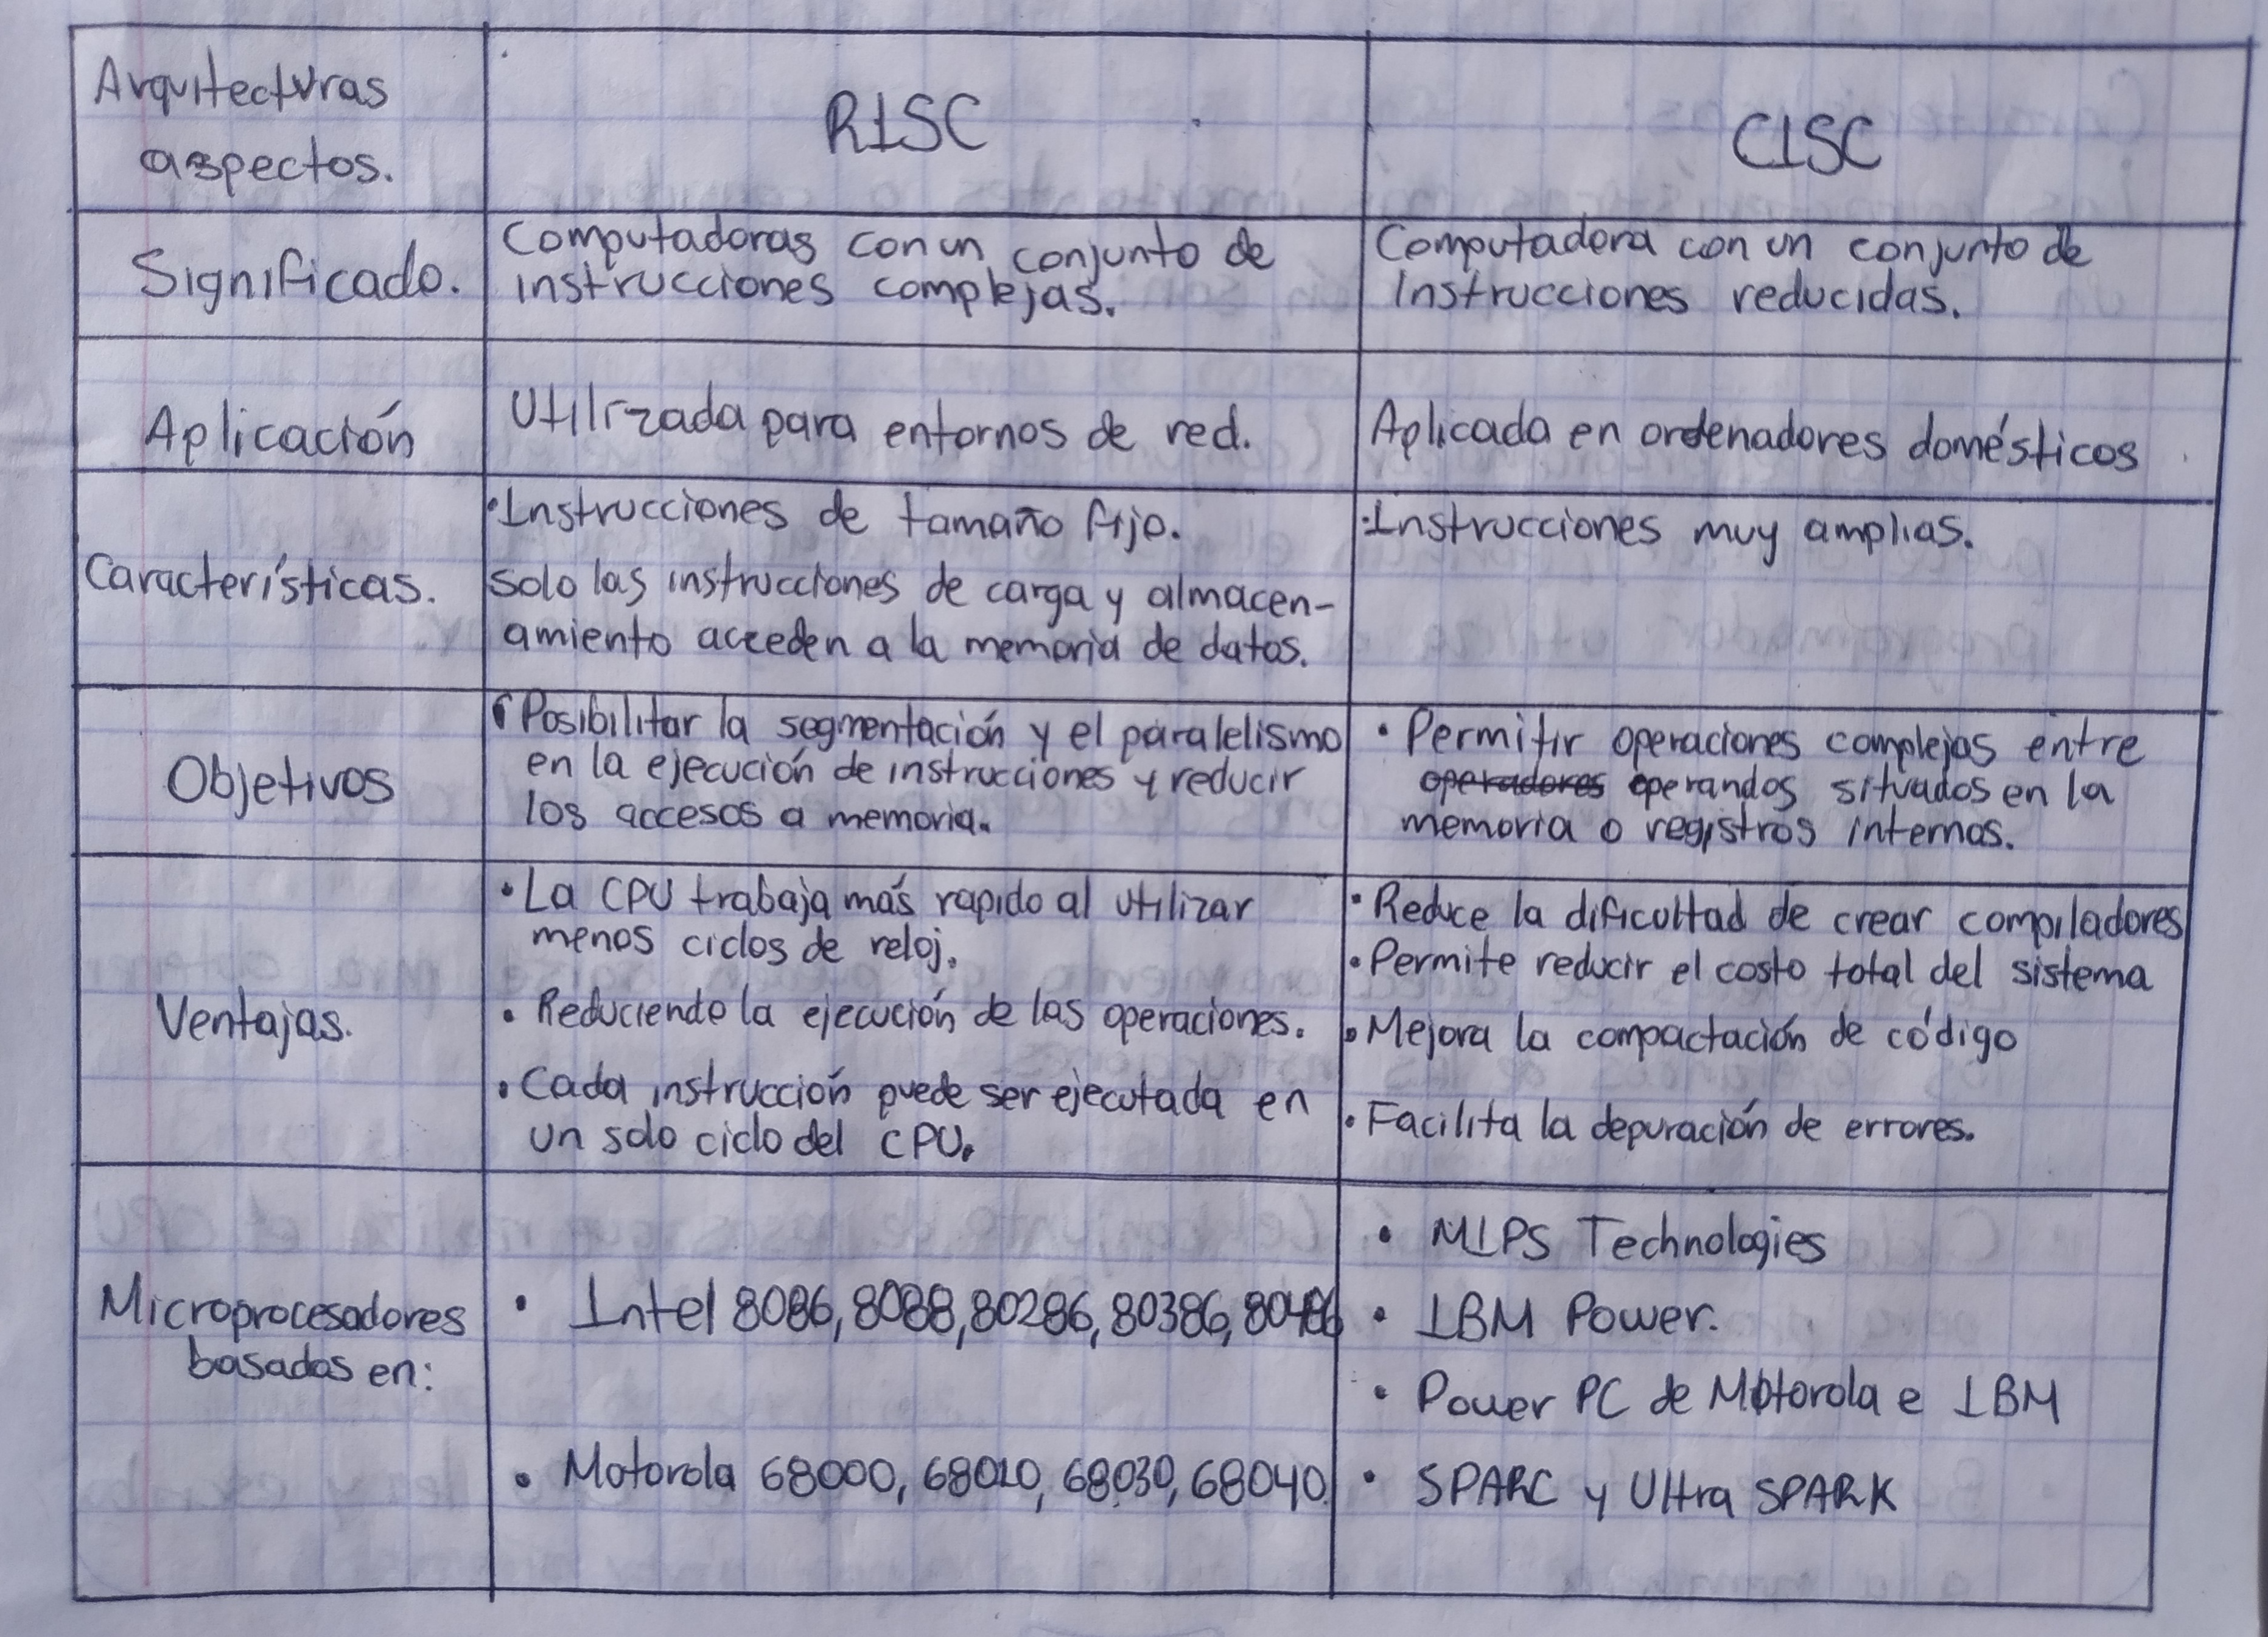 Arquitecturas
aspectos.
RISC
CISC
Significado.
Computadoras con un conjunto de
instrucciones complejas.
Computadora con un conjunto de
Instrucciones reducidas.
Aplicación
Utilizada para entornos de red.
Aplicada en ordenadores domésticos
Características.
•Instrucciones de tamaño fijo.
Solo las instrucciones de carga y almacen-
amiento acceden a la memoria de datos.
•Instrucciones muy amplias.
Objetivos
• Posibilitar la segmentación y el paralelismo
en la ejecución de instrucciones y reducir
los accesos a memoria.
• Permitir operaciones complejas entre
operadores operandos situados en la
memoria o registros internos.
Ventajas.
• La CPU trabaja más rapido al utilizar
menos ciclos de reloj.
• Reduciendo la ejecución de las operaciones.
• Cada instrucción puede ser ejecutada en
un solo ciclo del CPU.
• Reduce la dificultad de crear compiladores
• Permite reducir el costo total del sistema
• Mejora la compactación de código
• Facilita la depuración de errores.
Microprocesadores
basados en:
• Intel 8086, 8088, 80286, 80386, 80486
• Motorola 68000, 68010, 68030, 68040.
• MIPS Technologies
• IBM Power.
• Power PC de Motorola e IBM
• SPARC y Ultra SPARK